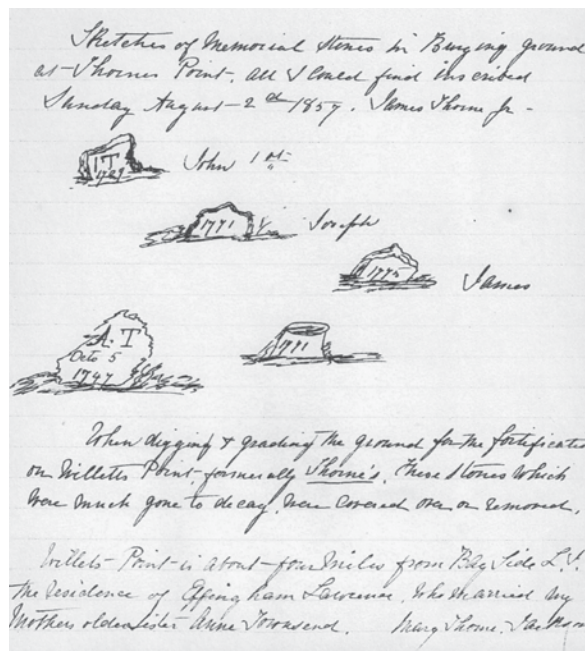 Sketches of Memorial Stones in Burying ground
at Thornes Point. all I could find inscribed
Sunday August 2d 1857. James Thorne Jr -
IT
1729
John 1st
1771
Joseph
1775
James
A. T
Octo 5
1747
1711
When digging & grading the ground for the fortificatio
on Willetts Point, formerally Thorne's. These Stones which
were much gone to decay, were covered over or removed.
Willets Point is about four miles from Bay Side L.I.
the residence of Effingham Lawrence. Who married my
Mothers oldest sister Anne Townsend. Mary Thorne.